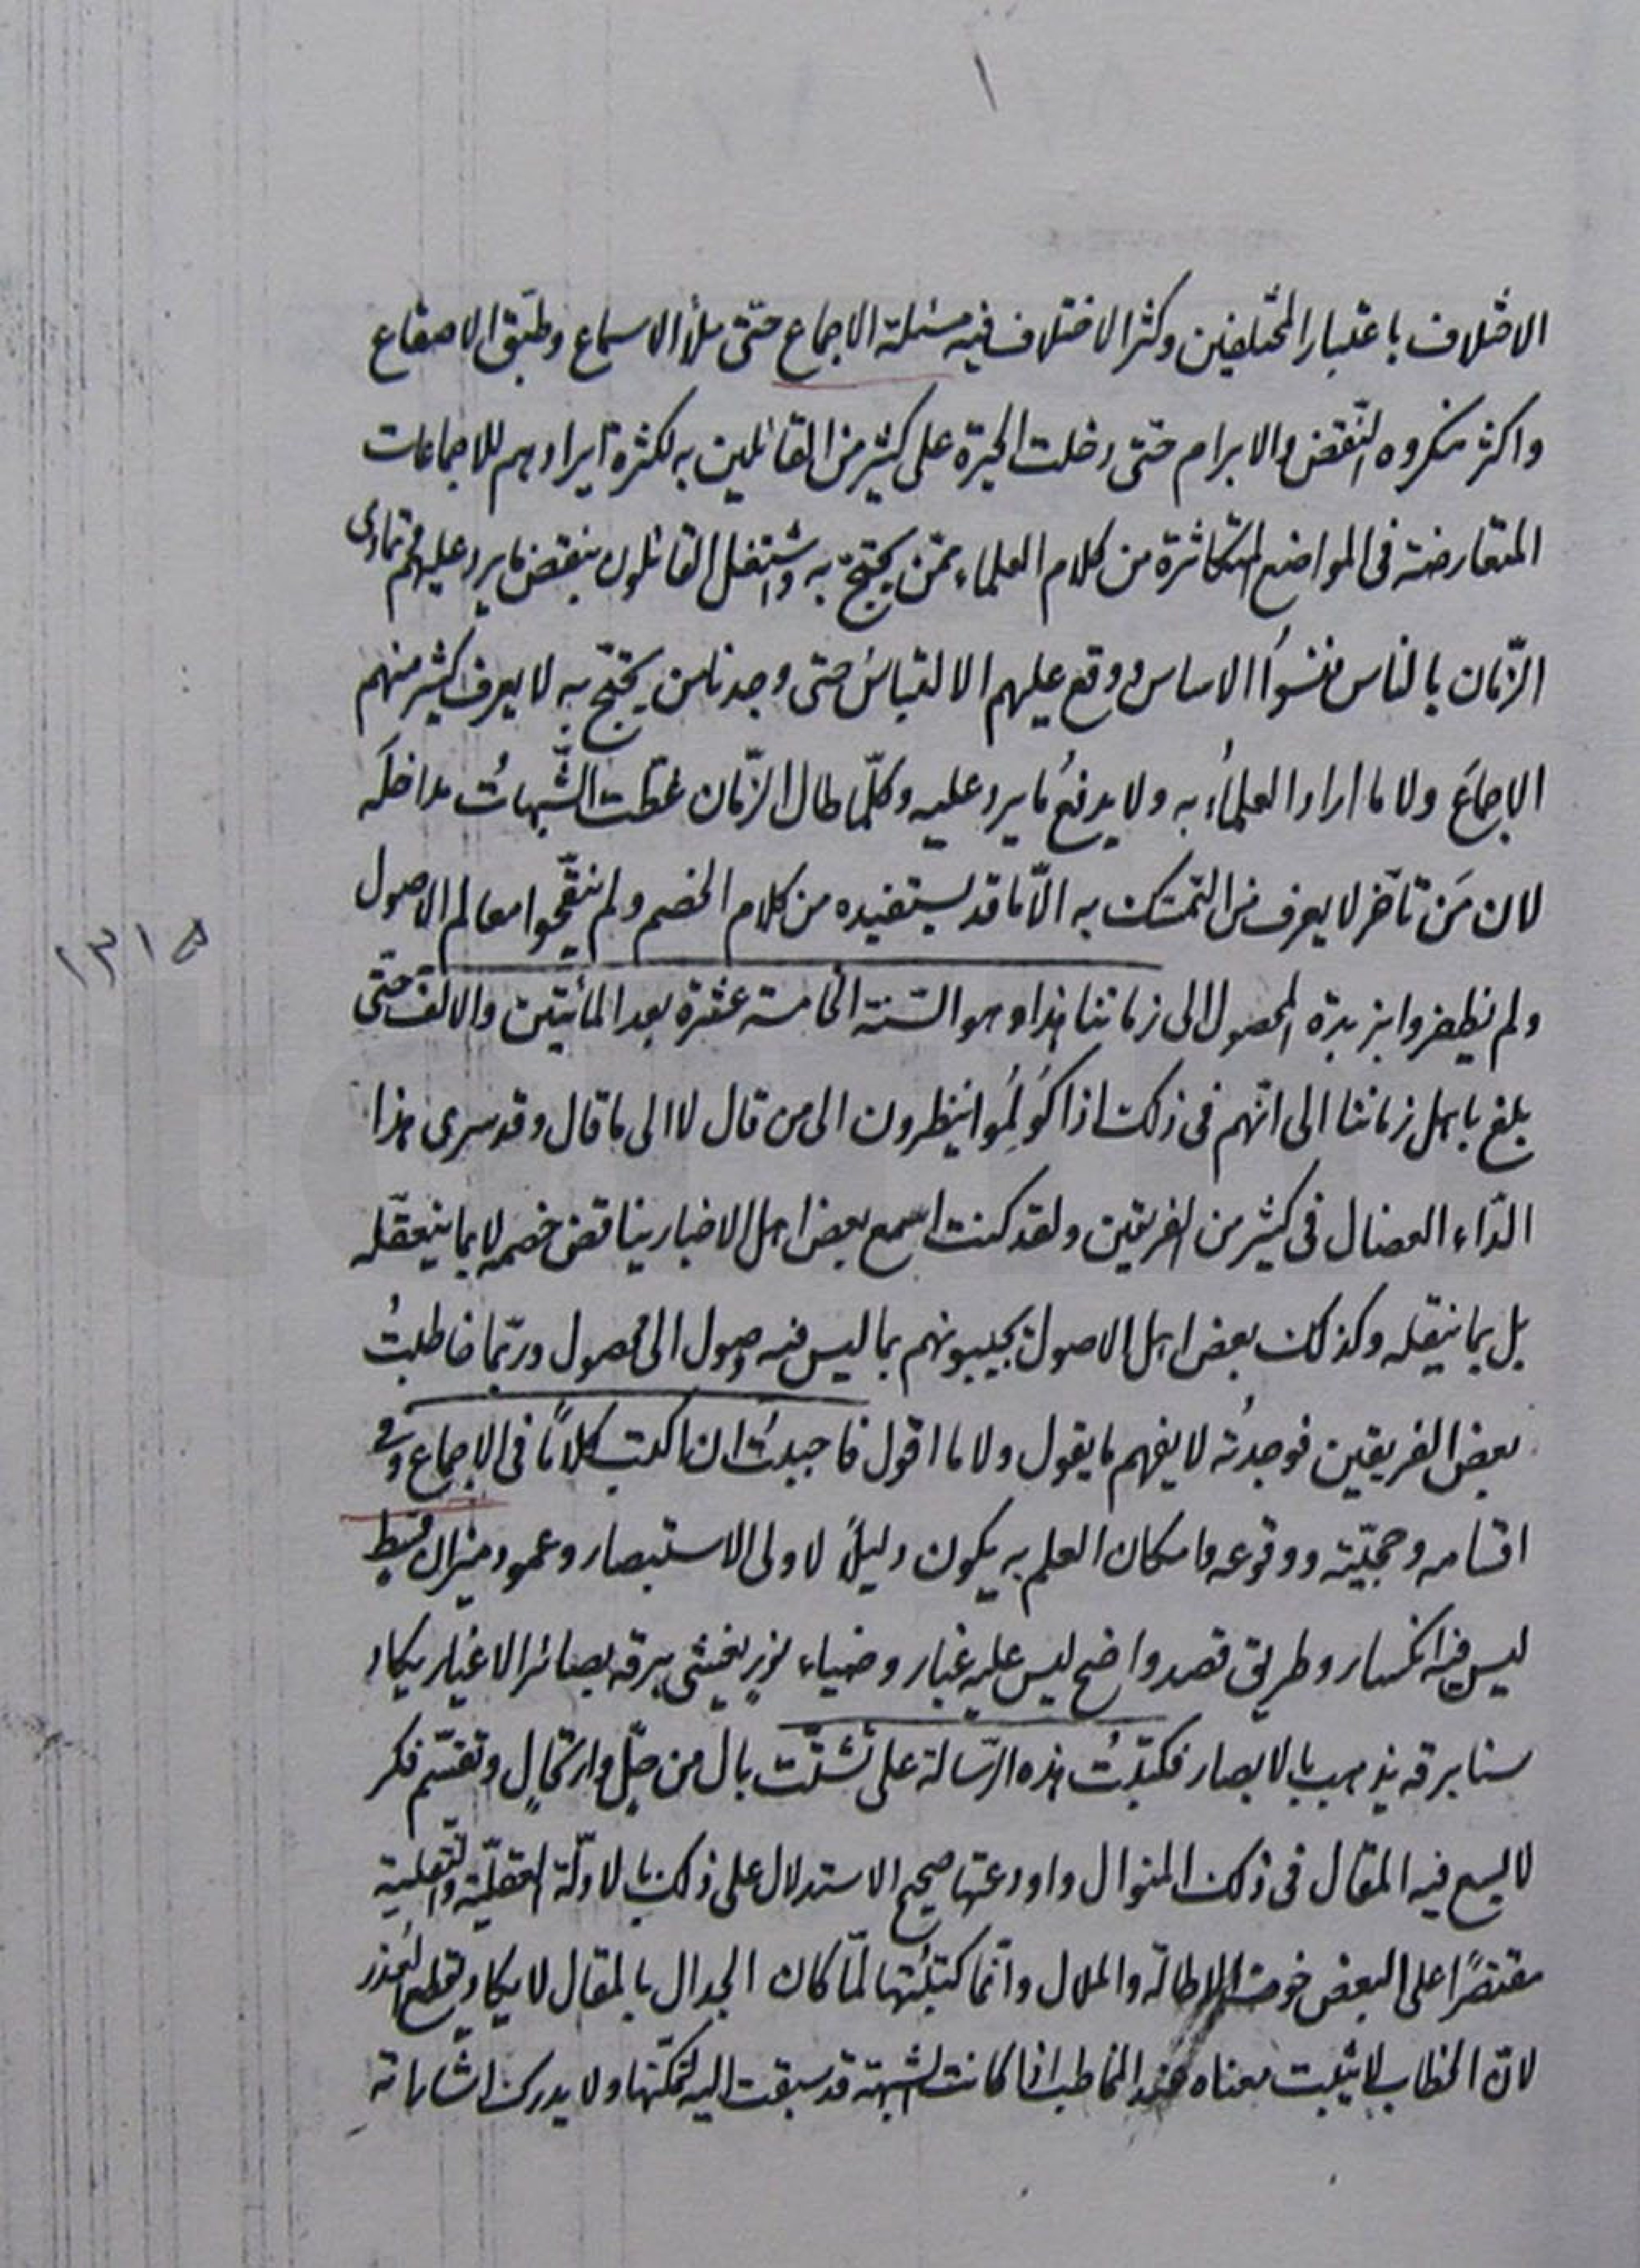 الاختلاف باعتبار المختلفين وكثر الاختلاف فيه مسئلة الاجماع حتّى ملأ الاسماع وطبّق الاصقاع
واكثر منكروه النّقض والابرام حتّى دخلت الحيرة على كثير من القائلين به لكثرة ايرادهم للاجماعات
المتعارضة فى المواضع المتكاثرة من كلام العلماء ممّن يحتجّ به واشتغل القائلون بنقض ما يرد عليهم ثم تمادى
الزّمان بالناس فنسُوا الاساس ووقع عليهم الالتباسُ حتى وجدنا من يحتجّ به لا يعرف كثير منهم
الاجماعَ ولا ما اراد العلماُء به ولا يدفعُ ما يرد عليه وكلّما طال الزّمان غطّت الشّبهاتُ مداخلَه
لان مَن تأخّر لا يعرف من التمسّك به الّا ما قد يستفيده من كلام الخصم ولم ينقّحوا معالم الاصول
ولم يظفروا بزبدة المحصول الى زماننا هذا وهو السّنة الخامسة عشرة بعد المأتين والالف حتّى
١٢١٥
بلغ باهل زماننا الى انّهم فى ذلك اذا كُولِمُوا ينظرون الى من قال لا الى ما قال وقد سرى هذا
الدّاء العضال فى كثير من الفريقين ولقد كنت اسمع بعض اهل الاخبار يناقض خصمه لا بما يتعقّله
بل بما ينقله وكذلك بعض اهل الاصول يجيبونهم بما ليس فيه وصول الى محصول وربّما خاطبتُ
بعض الفريقين فوجدتُه لا يفهم ما يقول ولا ما اقول فاحببتُ ان اكتب كلامًا فى الاجماع وفى
اقسامه وحجيّته ووقوعه وامكان العلم به يكون دليلًا لاولى الاستبصار وعمود ميزان قسط
ليس فيه انكسار وطريق قصد واضح ليس عليه غبار وضياء نورٍ يغشى برقه بصائر الاغيار يكاد
سنا برقه يذهب بالابصار فكتبتُ هذه الرّسالة على تشتّت بال من حلّ وارتحالٍ وتقسّم فكر
لا يسع فيه المقال فى ذلك المنوال واودعتها صحيح الاستدلال على ذلك بالادلّة العقليّة والنّقلية
مقتصرًا على البعض خوف الاطالة والملال وانّما كتبتُها لمّا كان الجدال بالمقال لا يكاد يقطع العُذر
لانّ الخطاب لا يثبت معناه عند المخاطب اذا كانت الشبهة قد سبقت اليه لتمكّنها ولا يدرك اشاراته